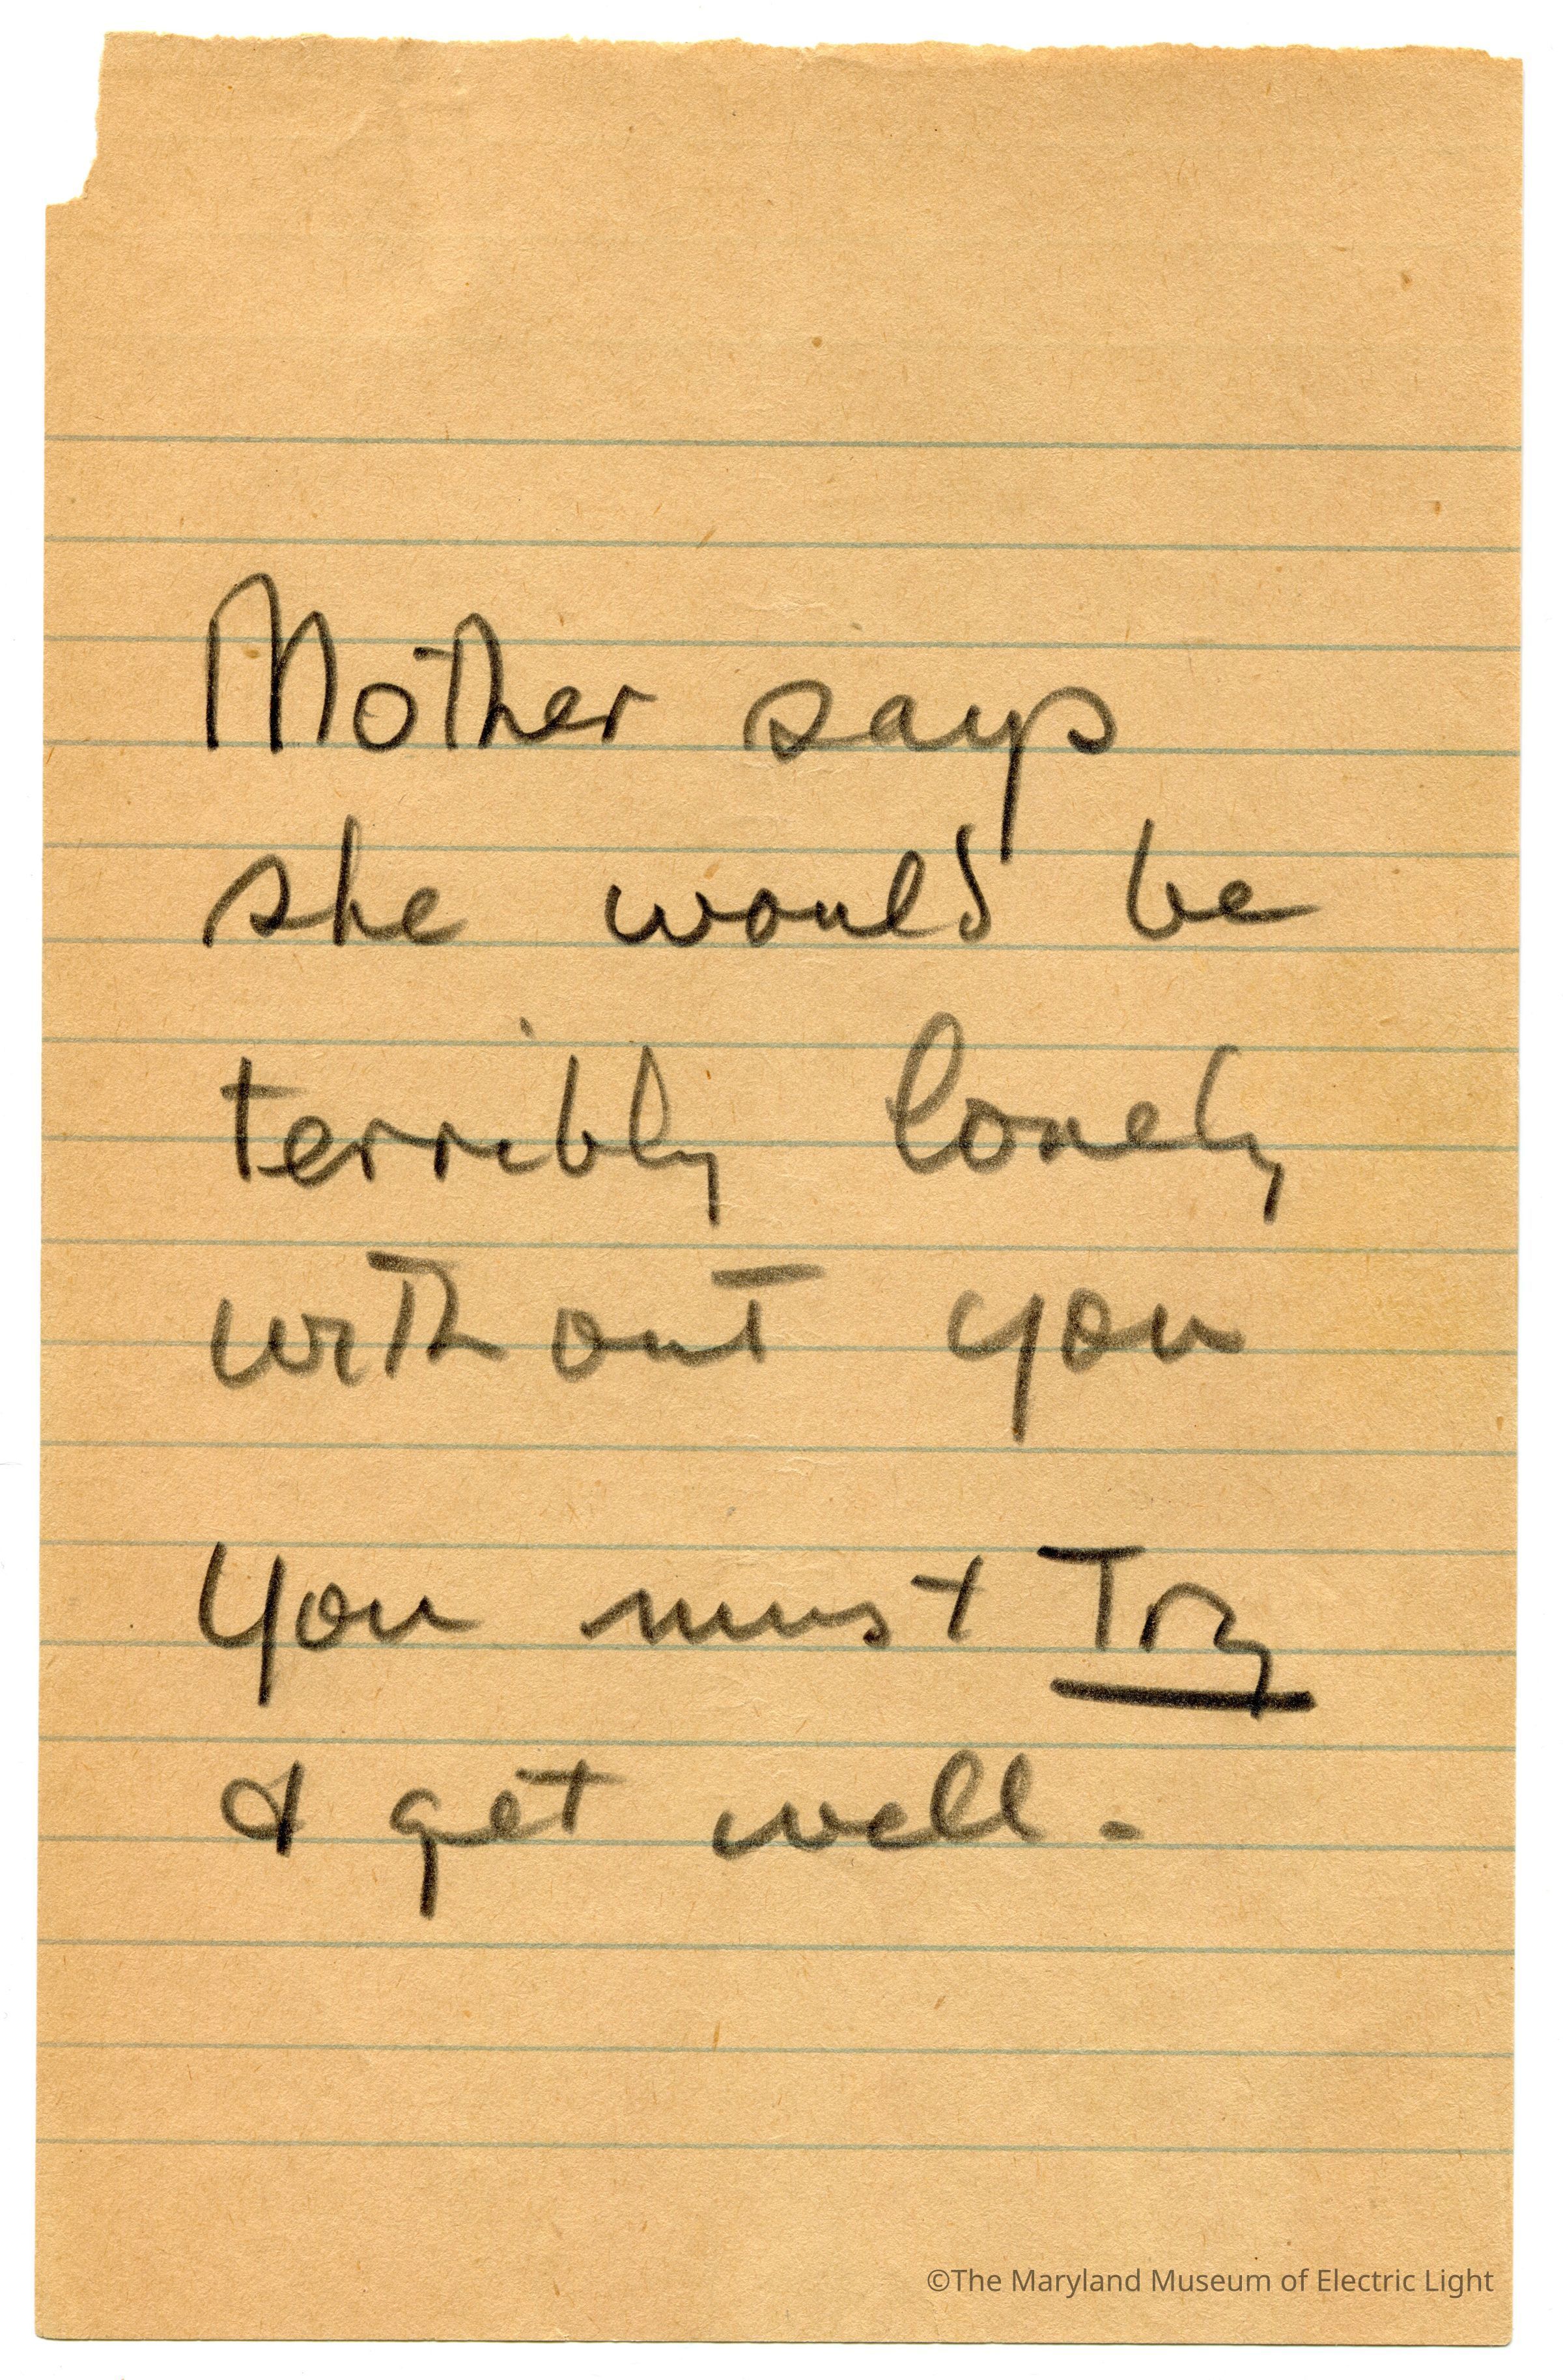 Mother says
she would be
terribly lonely
without you
You must Try
& get well.
©The Maryland Museum of Electric Light